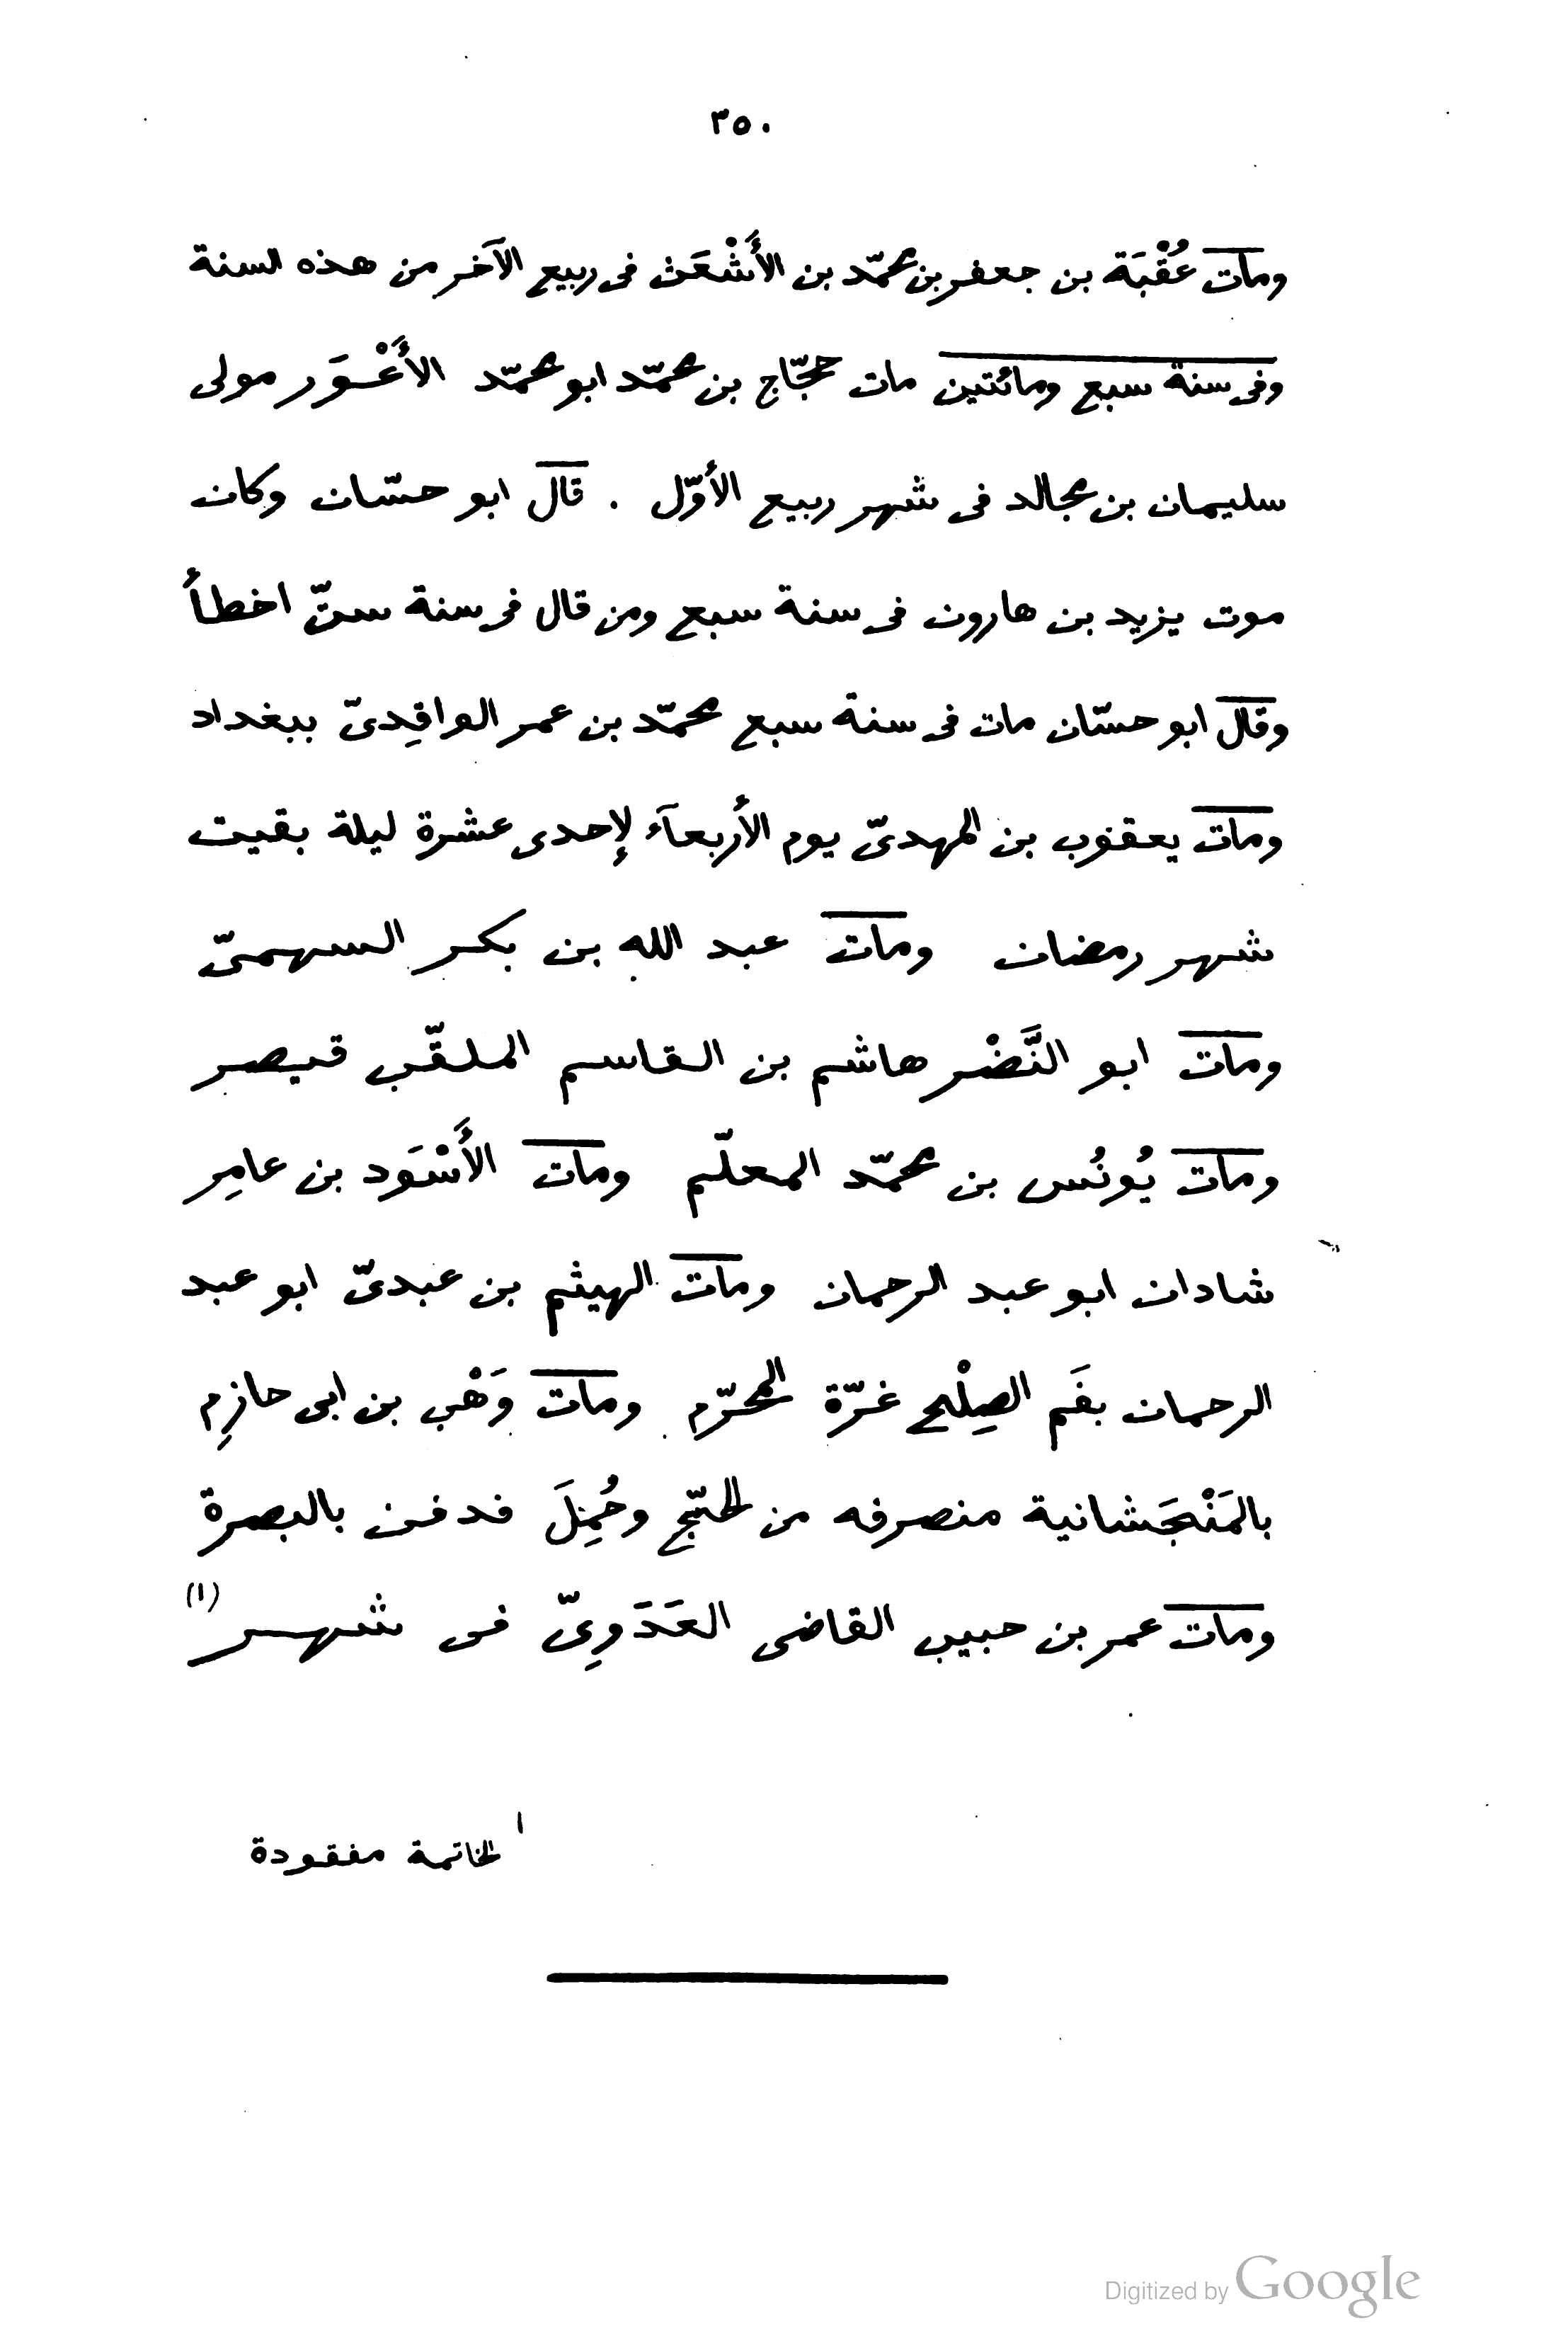 ٣٥٠
ومات عُقْبَة بن جعفر بن محمّد بن الأَشْعَث فى ربيع الآخر من هذه السنة
وفى سنة سبع ومائتين مات حجّاج بن محمّد ابو محمّد الأَعْوَر مولى
سليمان بن مجالد فى شهر ربيع الأوّل . قال ابو حسّان وكان
موت يزيد بن هارون فى سنة سبع ومن قال فى سنة ستّ اخطأ
وقال ابو حسّان مات فى سنة سبع محمّد بن عمر الواقِدىّ ببغداد
ومات يعقوب بن المهدىّ يوم الأربعآء لإحدى عشرة ليلة بقيت
شهر رمضان ومات عبد الله بن بكر السهمىّ
ومات ابو النَّضْر هاشم بن القاسم الملقّب قيصر
ومات يُونُس بن محمّد المعلّم ومات الأَسْوَد بن عامِر
شادان ابو عبد الرحمان ومات الهيثم بن عبدىّ ابو عبد
الرحمان بفَم الصِلْح غرّة المحرّم ومات وَهْب بن ابى حازِم
بالمَنْجَشانية منصرفه من الحجّ وحُمِلَ فدفن بالبصرة
ومات عمر بن حبيب القاضى العَدَوِىّ فى شهر (١)
١ الخاتمة مفقودة
Digitized by Google